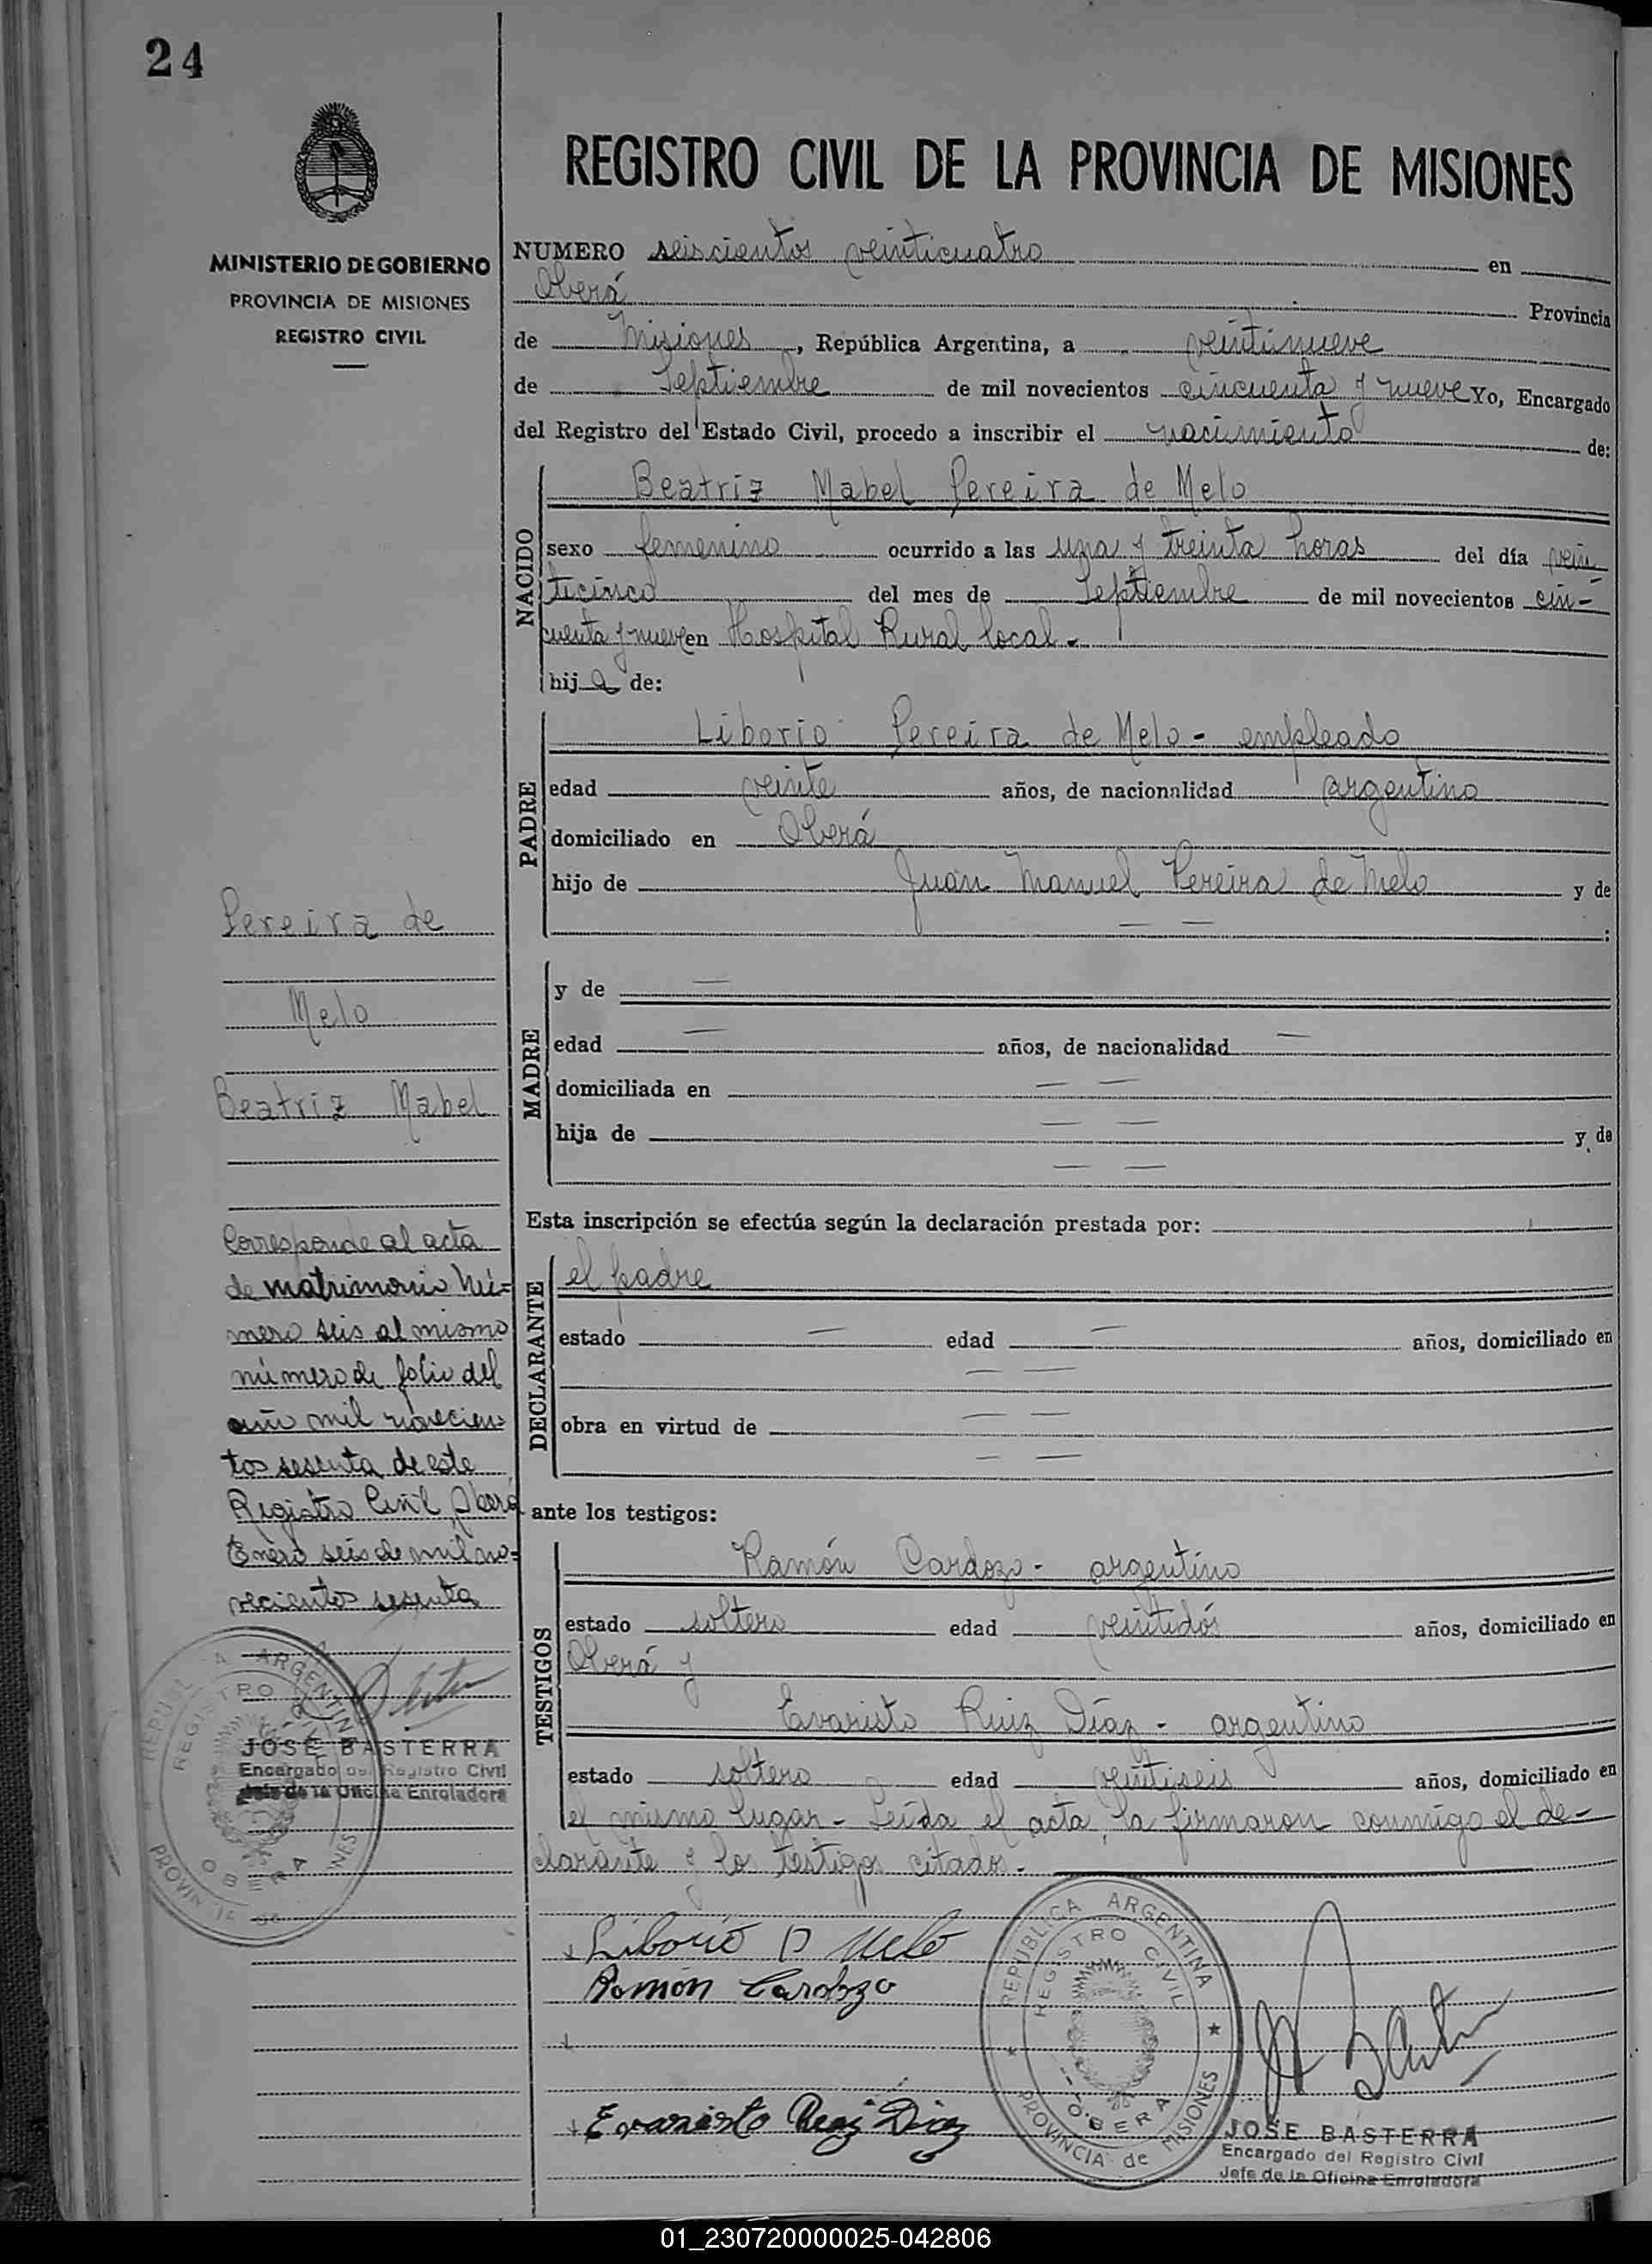 24
REGISTRO CIVIL DE LA PROVINCIA DE MISIONES
MINISTERIO DE GOBIERNO
PROVINCIA DE MISIONES
REGISTRO CIVIL
NUMERO seiscientos veinticuatro en
Oberá Provincia
de Misiones, República Argentina, a veintinueve
de Septiembre de mil novecientos cincuenta y nueve Yo, Encargado
del Registro del Estado Civil, procedo a inscribir el nacimiento de:
NACIDO
Beatriz Mabel Pereira de Melo
sexo femenino ocurrido a las una y treinta horas del día vein
ticinco del mes de Septiembre de mil novecientos cin-
cuenta y nueve en Hospital Rural local.-
hija de:
PADRE
Liborio Pereira de Melo - empleado
edad veinte años, de nacionalidad argentino
domiciliado en Oberá
hijo de Juan Manuel Pereira de Melo y de
— — :
MADRE
y de —
edad — años, de nacionalidad —
domiciliada en — —
hija de — — y de
— —
Esta inscripción se efectúa según la declaración prestada por:
DECLARANTE
el padre
estado — edad — años, domiciliado en
— —
obra en virtud de — —
— —
ante los testigos:
TESTIGOS
Ramón Cardozo - argentino
estado soltero edad veintidós años, domiciliado en
Oberá y
Evaristo Ruiz Díaz - argentino
estado soltero edad veintiseis años, domiciliado en
el mismo lugar - Leída el acta, la firmaron conmigo el de-
clarante y los testigos citados.-
Liborio P Melo
Ramón Cardozo
Evaristo Ruiz Diaz
REPUBLICA ARGENTINA
REGISTRO CIVIL
OBERA
PROVINCIA de MISIONES
JOSE BASTERRA
Encargado del Registro Civil
Jefe de la Oficina Enroladora
Pereira de
Melo
Beatriz Mabel
Corresponde al acta
de matrimonio Nú-
mero seis al mismo
número de folio del
año mil novecien-
tos sesenta de este
Registro Civil, Oberá
Enero seis de mil no-
vecientos sesenta
REPUBLICA ARGENTINA
REGISTRO CIVIL
OBERA
PROVINCIA de MISIONES
JOSE BASTERRA
Encargado del Registro Civil
Jefe de la Oficina Enroladora
01_230720000025-042806